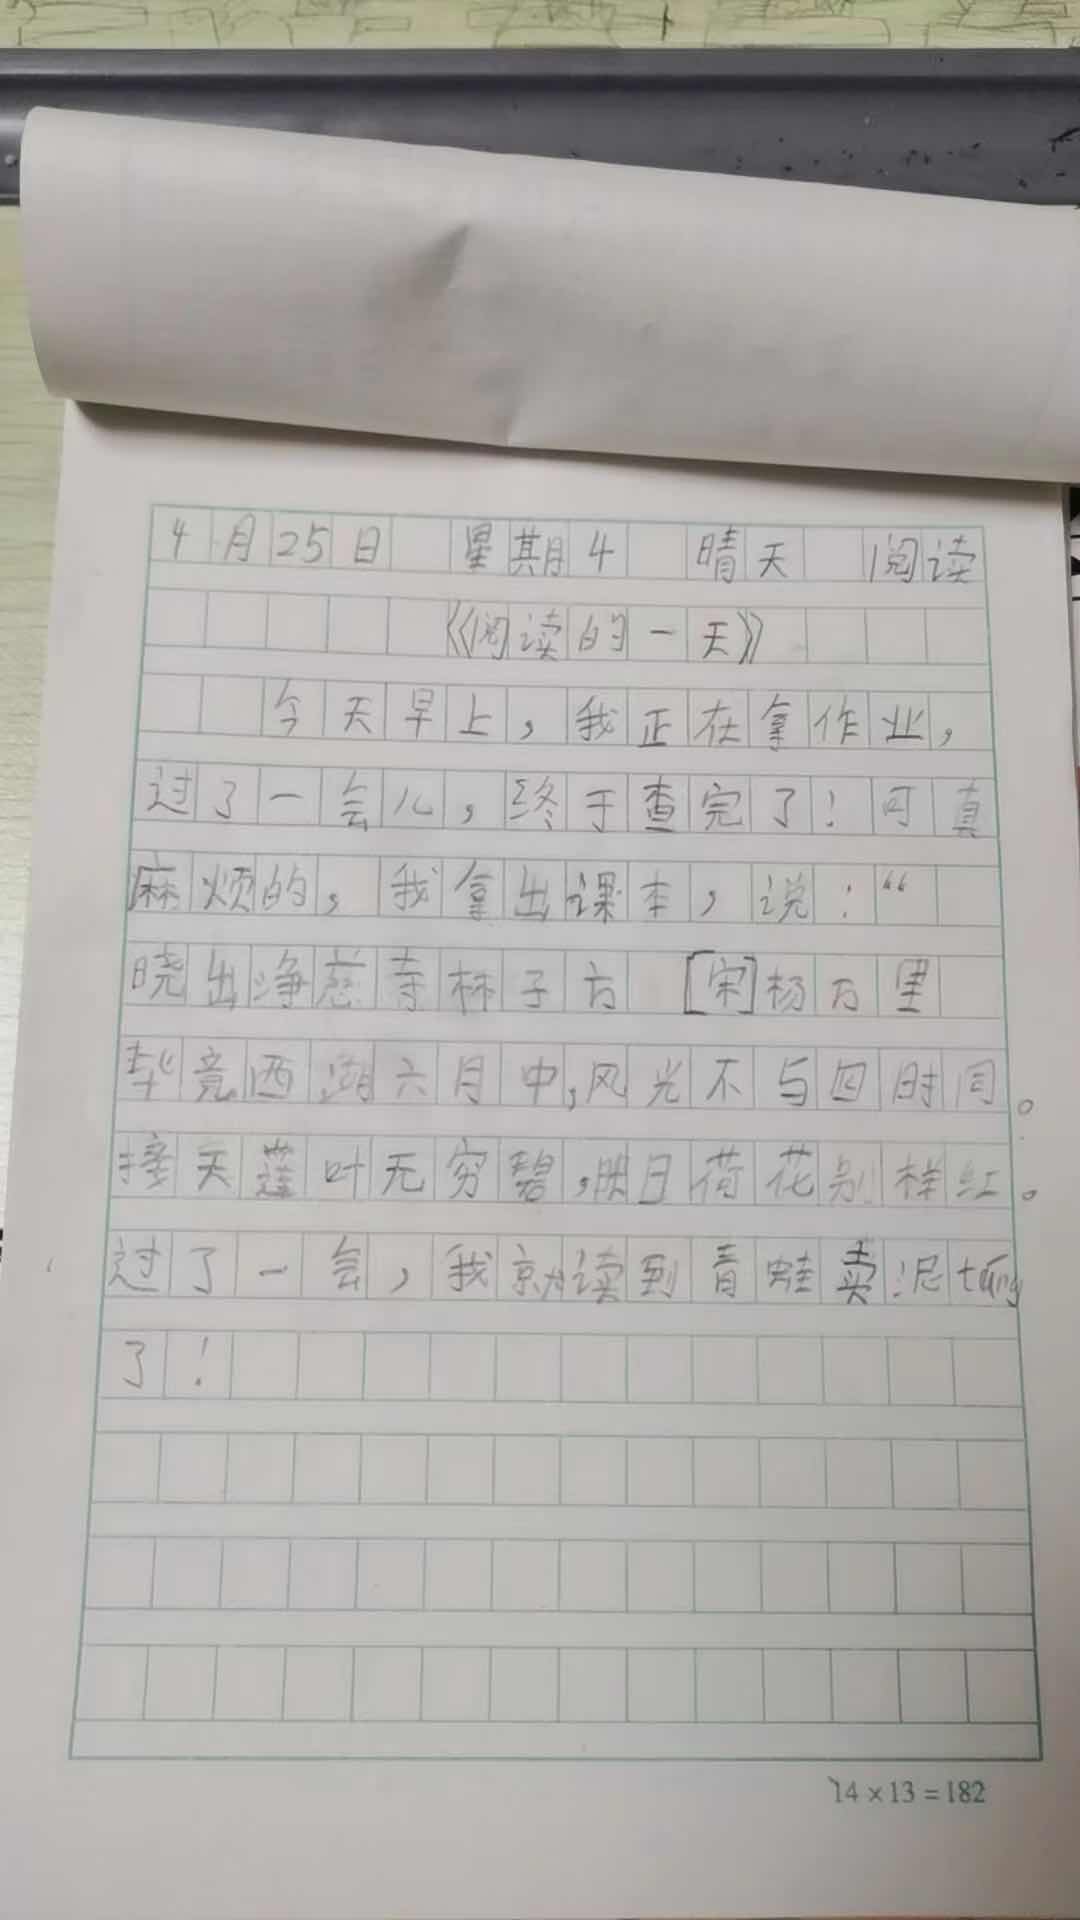 4月25日 星期4 晴天 阅读
《阅读的一天》
今天早上，我正在拿作业，
过了一会儿，终于查完了！可真
麻烦的，我拿出课本，说：“
晓出净慈寺林子方 [宋]杨万里
毕竟西湖六月中,风光不与四时同。
接天莲叶无穷碧,映日荷花别样红。
过了一会，我就读到青蛙卖泥táng
了！
14×13=182